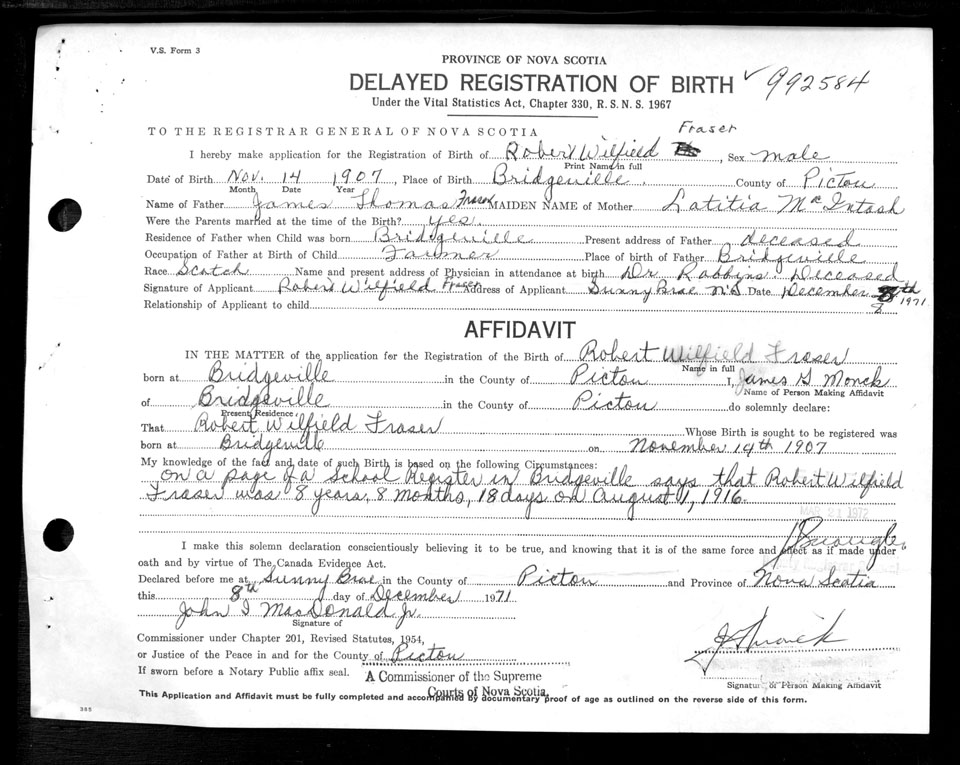 V.S. Form 3
PROVINCE OF NOVA SCOTIA
DELAYED REGISTRATION OF BIRTH ✓ 992584
Under the Vital Statistics Act, Chapter 330, R. S. N. S. 1967
TO THE REGISTRAR GENERAL OF NOVA SCOTIA
Fraser
I hereby make application for the Registration of Birth of Robert Wilfield, Sex male
Print Name in full
Date of Birth Nov. 14 1907, Place of Birth Bridgeville. County of Pictou
Month Date Year
Name of Father James Thomas Fraser MAIDEN NAME of Mother Latitia McIntosh
Were the Parents married at the time of the Birth? yes.
Residence of Father when Child was born Bridgeville Present address of Father deceased
Occupation of Father at Birth of Child Farmer Place of birth of Father Bridgeville
Race Scotch Name and present address of Physician in attendance at birth Dr Robbins. Deceased
Signature of Applicant Robert Wilfield Fraser Address of Applicant Sunny Brae N.S Date December 8th 1971
Relationship of Applicant to child
AFFIDAVIT
IN THE MATTER of the application for the Registration of the Birth of Robert Wilfield Fraser
Name in full
born at Bridgeville in the County of Pictou I, James G Monck
Name of Person Making Affidavit
of Bridgeville in the County of Pictou do solemnly declare:
Present Residence
That Robert Wilfield Fraser Whose Birth is sought to be registered was
born at Bridgeville on November 14th 1907
My knowledge of the fact and date of such Birth is based on the following Circumstances:
On a page of a School Register in Bridgeville says that Robert Wilfield
Fraser was 8 years, 8 months, 18 days on August 1, 1916.
MAR 21 1972
I make this solemn declaration conscientiously believing it to be true, and knowing that it is of the same force and effect as if made under
oath and by virtue of The Canada Evidence Act.
Declared before me at Sunny Brae in the County of Pictou and Province of Nova Scotia
this 8th day of December 1971
John I MacDonald Jr.
Signature of
Commissioner under Chapter 201, Revised Statutes, 1954,
or Justice of the Peace in and for the County of Pictou
If sworn before a Notary Public affix seal.
A Commissioner of the Supreme
Courts of Nova Scotia
Signature of Person Making Affidavit
This Application and Affidavit must be fully completed and accompanied by documentary proof of age as outlined on the reverse side of this form.
385